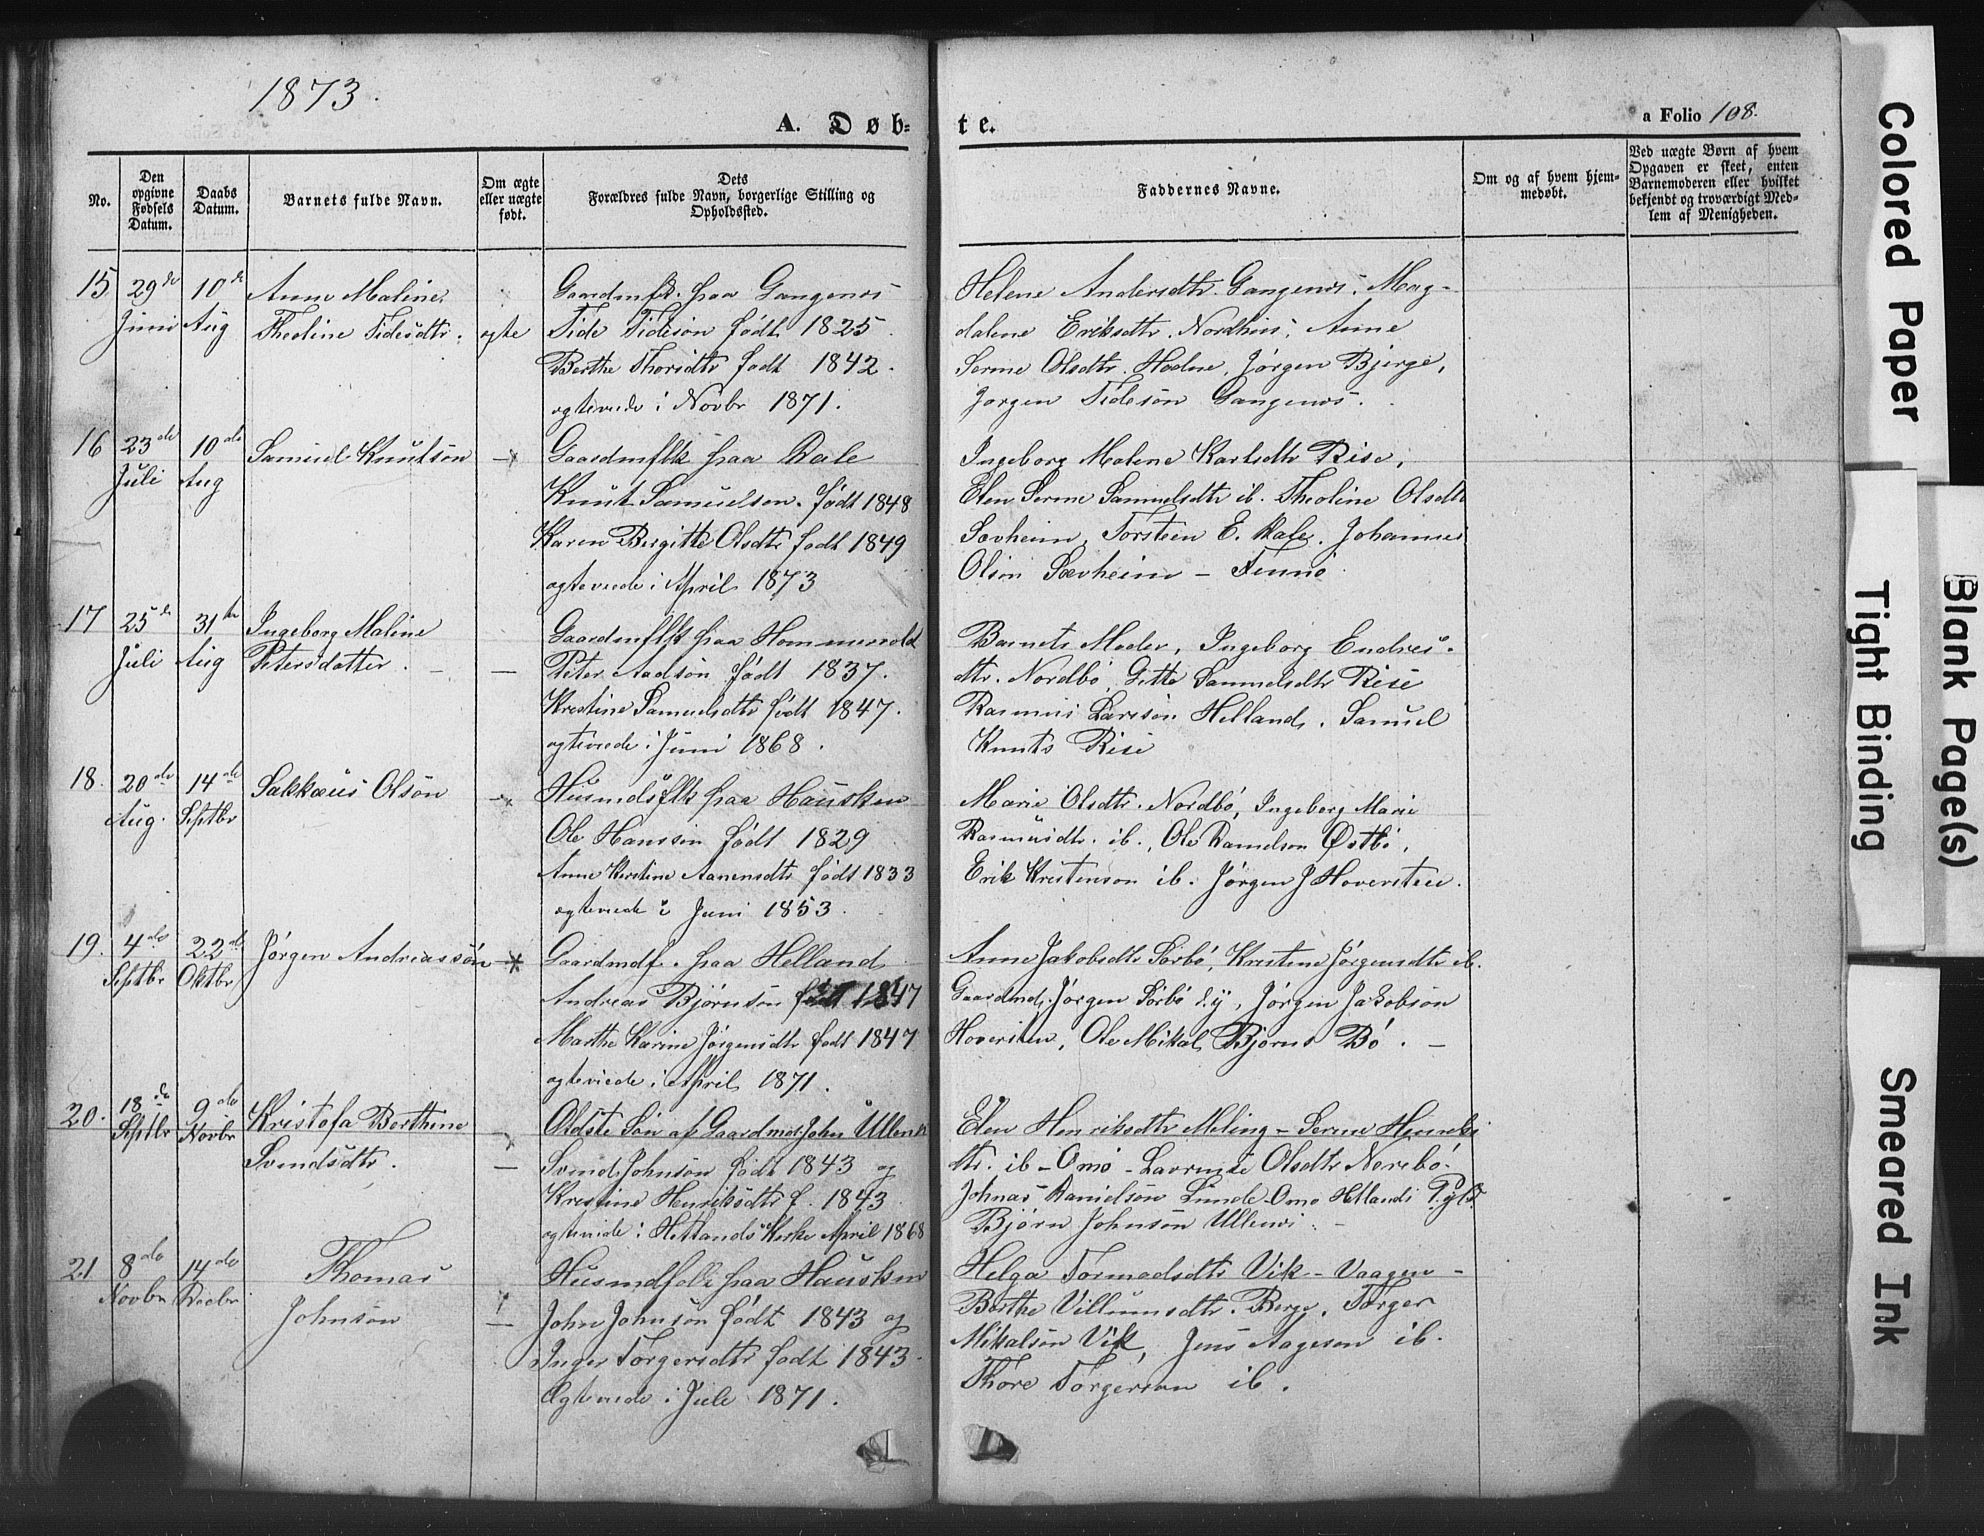 1873.
A. Døb-
te.
a Folio 108.
No.
Den opgivne Fødsels Datum.
Daabs Datum.
Barnets fulde Navn.
Om ægte eller uægte født.
Dets Forældres fulde Navn, borgerlige Stilling og Opholdssted.
Faddernes Navne.
Om og af hvem hjemmedøbt.
Ved uægte Børn af hvem
Opgaven er skeet, enten
Barnemoderen eller hvilket
bekjendt og troværdigt Med-
lem af Menigheden.
15 29de Juni 10de Aug
Anne Maline
Theoline Tidesdtr. ægte
Gaardmfk. paa Gangenes
Tide Tideson født 1825
Berthe Thorsdtr født 1842.
ægteviede i Novbr 1871.
Helene Andersdtr. Gangenes, Mag-
dalene Eriksdtr. Nordhus, Anne
Serine Olsdtr. Hodne, Jørgen Bjerge,
Jørgen Tideson Gangenes.
16 23de Juli 10de Aug
Samuel Knutson
Gaardmflk paa Dale
Knut Samuelson. født 1848
Karen Birgitte Olsdtr født 1849
ægteviede i April 1873
Ingeborg Malene Karlsdtr Rise,
Elen Serine Samuelsdtr ib. Theoline Olsdtr
Sævheim, Torsteen E. Dale, Johannes
Olson Sævheim – Finnø
17 25de Juli 31te Aug
Ingeborg Maline
Petersdatter.
Gaardmflk paa Hommersold
Peter Aadson født 1837.
Kristine Samuelsdtr født 1847.
ægteviede i Juni 1868.
Barnets Moder, Ingeborg Endres-
dtr. Nordbø, Gitte Samuelsdtr Rise
Rasmus Larsson Helland, Samuel
Knuts Rise
18. 20de Aug. 14de Septbr
Sakkæus Olson
Husmdsflk paa Hausken
Ole Hansson født 1829
Anne Kirstine Aanensdtr født 1833
ægteviede i Juni 1853.
Marie Olsdtr. Nordbø, Ingeborg Marie
Rasmusdtr. ib., Ole Danielson Østbø,
Erik Kristenson ib. Jørgen J Hoversteen.
19. 4de Septbr 22de Oktbr
Jørgen Andreasson
Gaardmdf. paa Helland
Andreas Bjørnson født 1847
Marthe Karine Jørgensdtr født 1847
ægteviede i April 1871.
Anne Jakobsdtr Sørbø, Kristine Jørgensdtr ib.
Gaardmd. Jørgen Sørbø d.y, Jørgen Jakobson
Hoversten, Ole Mikal Bjørns Bø.
20. 18de Septbr 9de Novbr
Kristofa Berthine
Svendsdtr.
Oldste Søn af Gaardmd. John Ullenes
Svend Johnson født 1843 og
Kristine Henriksdtr f. 1843
ægteviede i Hetlands Kirke April 1868
Elen Henriksdtr Meling – Serine Henriks
dtr. ib – Omø – Lavrense Olsdtr Norebø.
Johnas Danielson Lunde – Omø Hetlands Pgld.
Bjørn Johnson Ullenes.
21 8de Novbr 14de Decbr
Thomas
Johnson
Husmdfolk paa Hausken
John Johnson født 1843 og
Inger Torgersdtr født 1843.
Ægteviede i Juli 1871.
Helga Tormodsdtr Vik – Vaagen –
Berthe Villumsdtr. Berge. Torger
Mikalson Vik, Jens Aageson ib.
Thore Torgerson ib.
Colored Paper
Blank Page(s)
Tight Binding
Smeared Ink